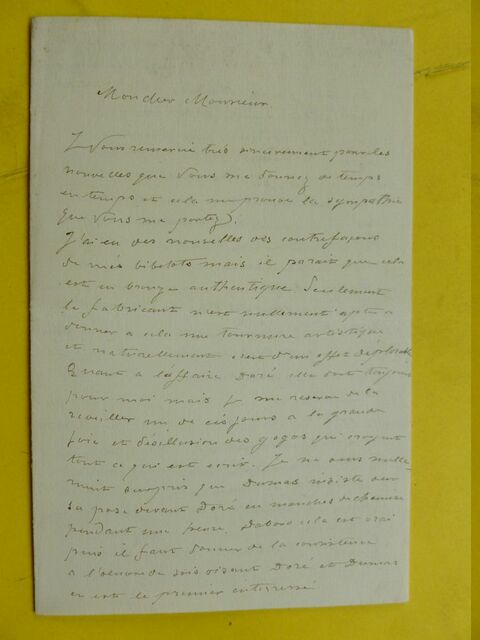 Mon cher Monsieur
Je vous remercie très sincèrement pour les
nouvelles que vous me donnez de temps
en temps et cela me prouve la sympathie
que vous me portez.
J'ai eu des nouvelles des contrefaçons
de mes bibelots mais il parait que cela
est en bronze authentique Seulement
le fabricant n'est nullement apte a
donner a cela une tournure artistique
et naturellement c'est d'un effet déplorable
Quant a l'affaire Doré elle dort toujours
pour moi mais je me reserve de la
reveiller un de ces jours a la grande
joie et désillusion des gogos qui croyent
tout ce qui est ecrit. Je ne suis nulle
ment surpris que Dumas insiste sur
sa pose devant Doré en manches de chemise
pendant une heure. Dabord cela est vrai
puis il faut donner de la consistence
a l'oeuvre de soit disant Doré et Dumas
en est le premier interressé